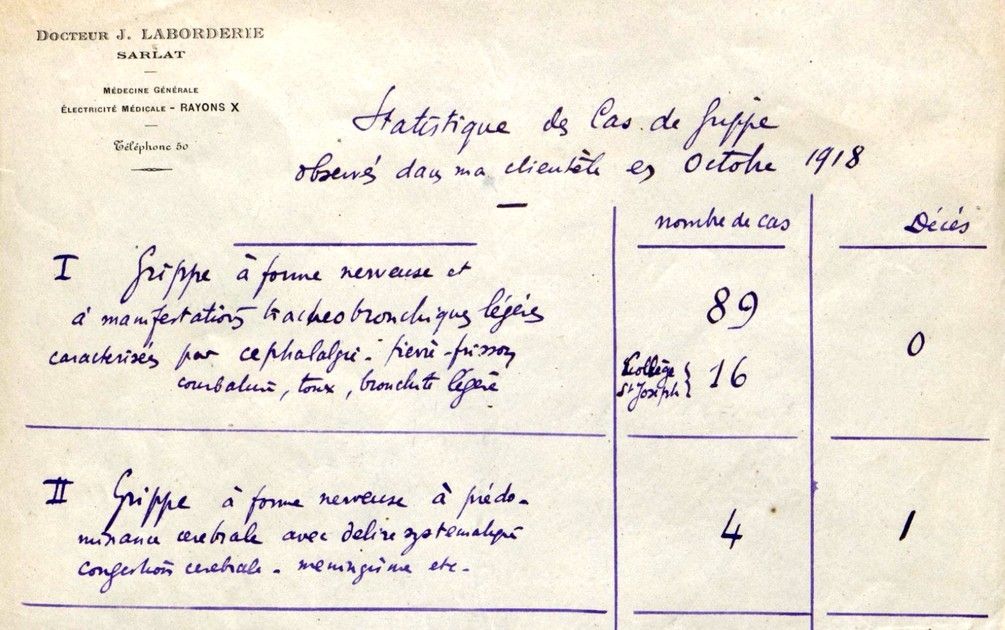 DOCTEUR J. LABORDERIE
SARLAT
MÉDECINE GÉNÉRALE
ÉLECTRICITÉ MÉDICALE - RAYONS X
Téléphone 50
Statistique des Cas de Grippe
observés dans ma clientèle en Octobre 1918
nombre de cas
Décés
I Grippe à forme nerveuse et
à manifestations tracheobronchiques légères
caracterisées par cephalalgie - fievre - frissons
courbature, toux, bronchite légère
89
Collège St Joseph } 16
0
II Grippe à forme nerveuse à prédo-
minance cerebrale avec delire systematique
congestion cerebrale - meningisme etc -
4
1